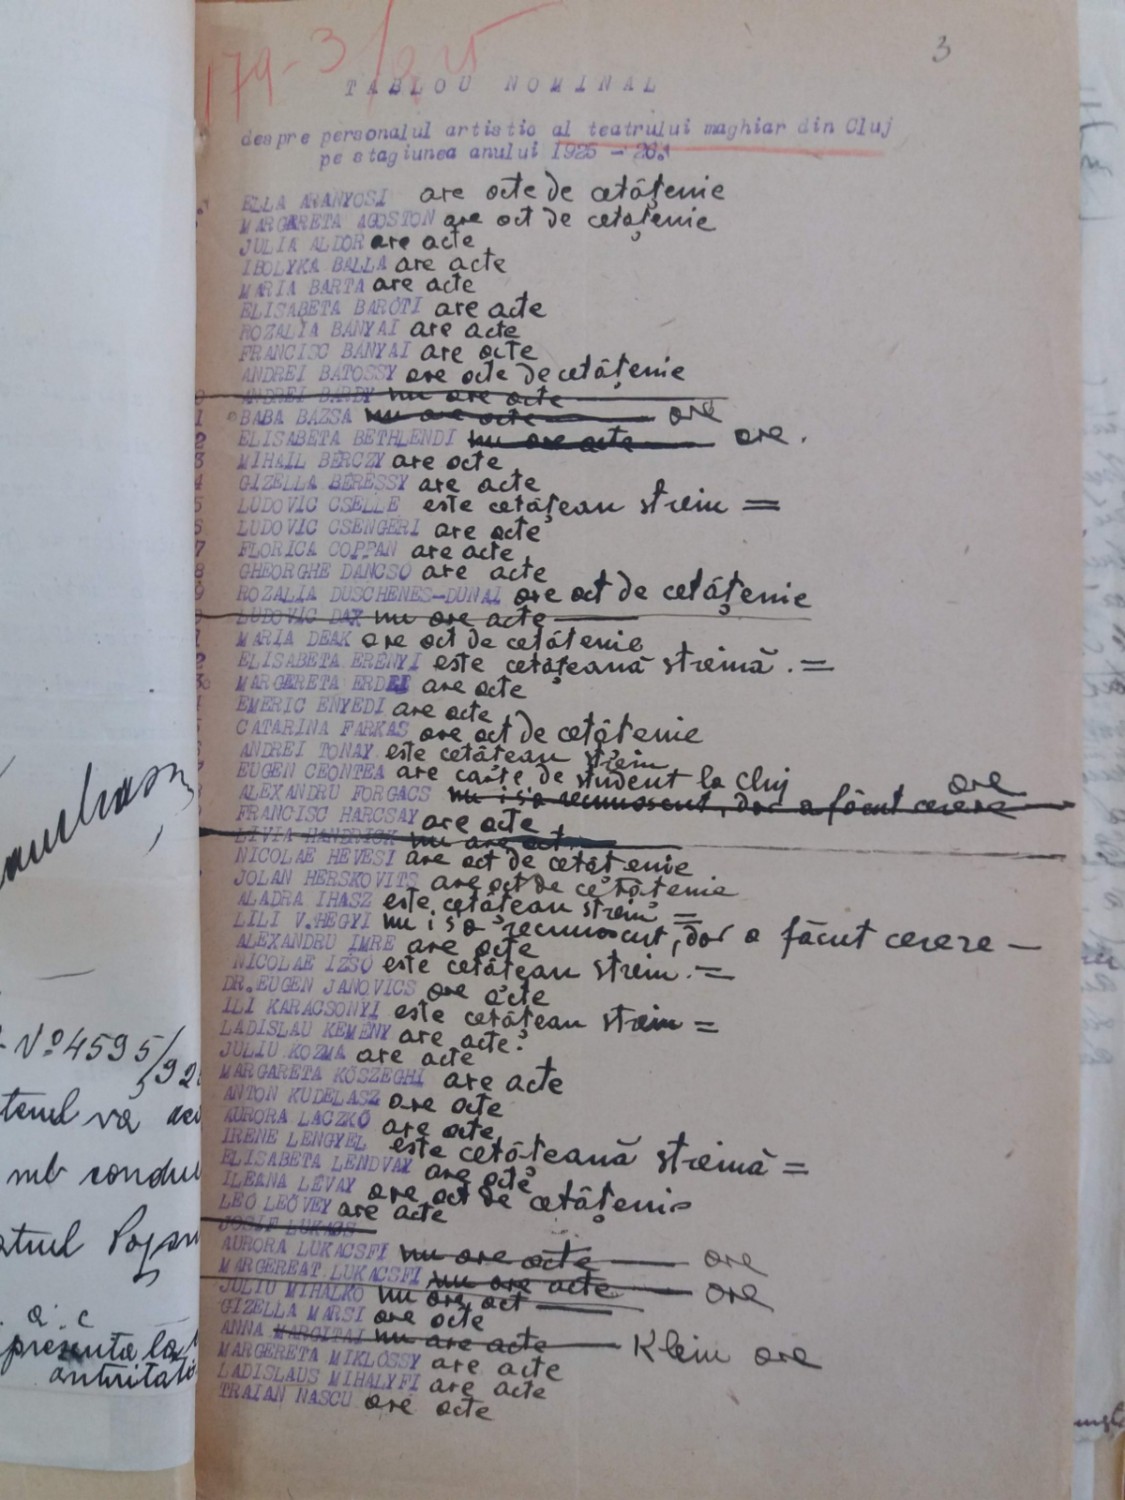 3
179-3/925
TABLOU NOMINAL
despre personalul artistic al teatrului maghiar din Cluj
pe stagiunea anului 1925 - 26.
ELLA ARANYOSI are acte de cetățenie
MARGARETA AGOSTON are act de cetațenie
JULIA ALDOR are acte
IBOLYKA BALLA are acte
MARIA BARTA are acte
ELISABETA BAROTI are acte
ROZALIA BANYAI are acte
FRANCISC BANYAI are acte
ANDREI BATOSSY are acte de cetățenie
0 ANDREI BARDY nu are acte
1 BABA BAZSA nu are acte are
2 ELISABETA BETHLENDI nu are acte are.
3 MIHAIL BERCZY are acte
4 GIZELLA BERESSY are acte
5 LUDOVIC CSELLE este cetățean strein =
6 LUDOVIC CSENGERI are acte
7 FLORICA COPPAN are acte
8 GHEORGHE DANCSO are acte
9 ROZALIA DUSCHENES-DUNAI are act de cetățenie
LUDOVIC DAX nu are acte
1 MARIA DEAK are act de cetățenie
2 ELISABETA ERENYI este cetățeană streină. =
3 MARGARETA ERDEI are acte
EMERIC ENYEDI are acte
CATARINA FARKAS are act de cetățenie
ANDREI TONAY este cetățean strein
EUGEN CEONTEA are carte de student la Cluj
ALEXANDRU FORGACS nu i s'a recunoscut, dar a făcut cerere are
FRANCISC HARCSAY are acte
LIVIA HANDRICK nu are act
NICOLAE HEVESI are act de cetățenie
JOLAN HERSKOVITS are act de cetățenie
ALADRA IHASZ este cetățean strein =
LILI V.HEGYI nu i s'a recunoscut, dar a făcut cerere -
ALEXANDRU IMRE are acte
NICOLAE IZSO este cetățean strein. =
DR.EUGEN JANOVICS are acte
ILI KARACSONYI este cetățean strein =
LADISLAU KEMENY are acte.
JULIU KOZMA are acte
MARGARETA KÖSZEGHI are acte
ANTON KUDELASZ are acte
AURORA LACZKÓ are acte
IRENE LENGYEL este cetățeană streină =
ELISABETA LENDVAY are acte
ILEANA LÉVAY are act de cetățenie
LEO LEÖVEY are acte
JOSIF LUKACS
AURORA LUKACSFI nu are acte are
MARGEREAT LUKACSFI nu are acte are
JULIU MIHALKO nu are act
GIZELLA MARSI are acte
ANNA MARGITAI nu are acte Klein are
MARGERETA MIKLOSSY are acte
LADISLAUS MIHALYFI are acte
TRAIAN NASCU are acte
Nº 4595/92